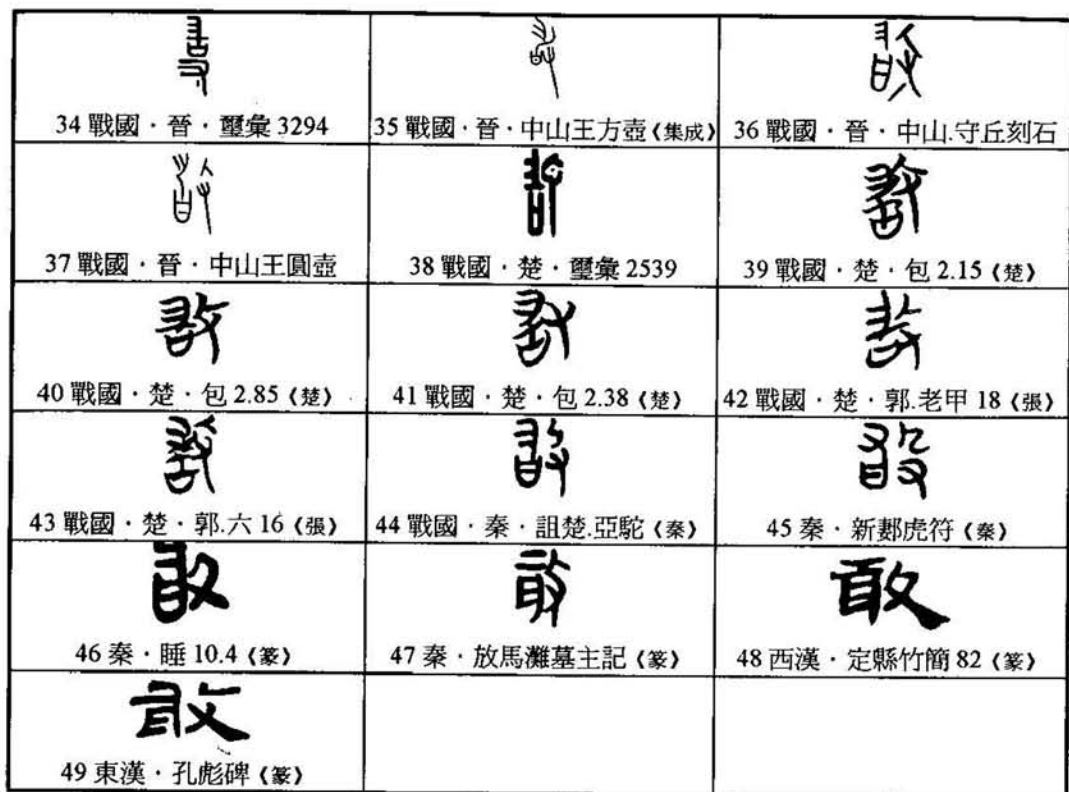 34 戰國．晉．璽彙 3294
35 戰國．晉．中山王方壺《集成》
36 戰國．晉．中山.守丘刻石
37 戰國．晉．中山王圓壺
38 戰國．楚．璽彙 2539
39 戰國．楚．包 2.15《楚》
40 戰國．楚．包 2.85《楚》
41 戰國．楚．包 2.38《楚》
42 戰國．楚．郭.老甲 18《張》
43 戰國．楚．郭.六 16《張》
44 戰國．秦．詛楚.亞駝《秦》
45 秦．新郪虎符《秦》
敢
46 秦．睡 10.4《篆》
47 秦．放馬灘墓主記《篆》
敢
48 西漢．定縣竹簡 82《篆》
敢
49 東漢．孔彪碑《篆》